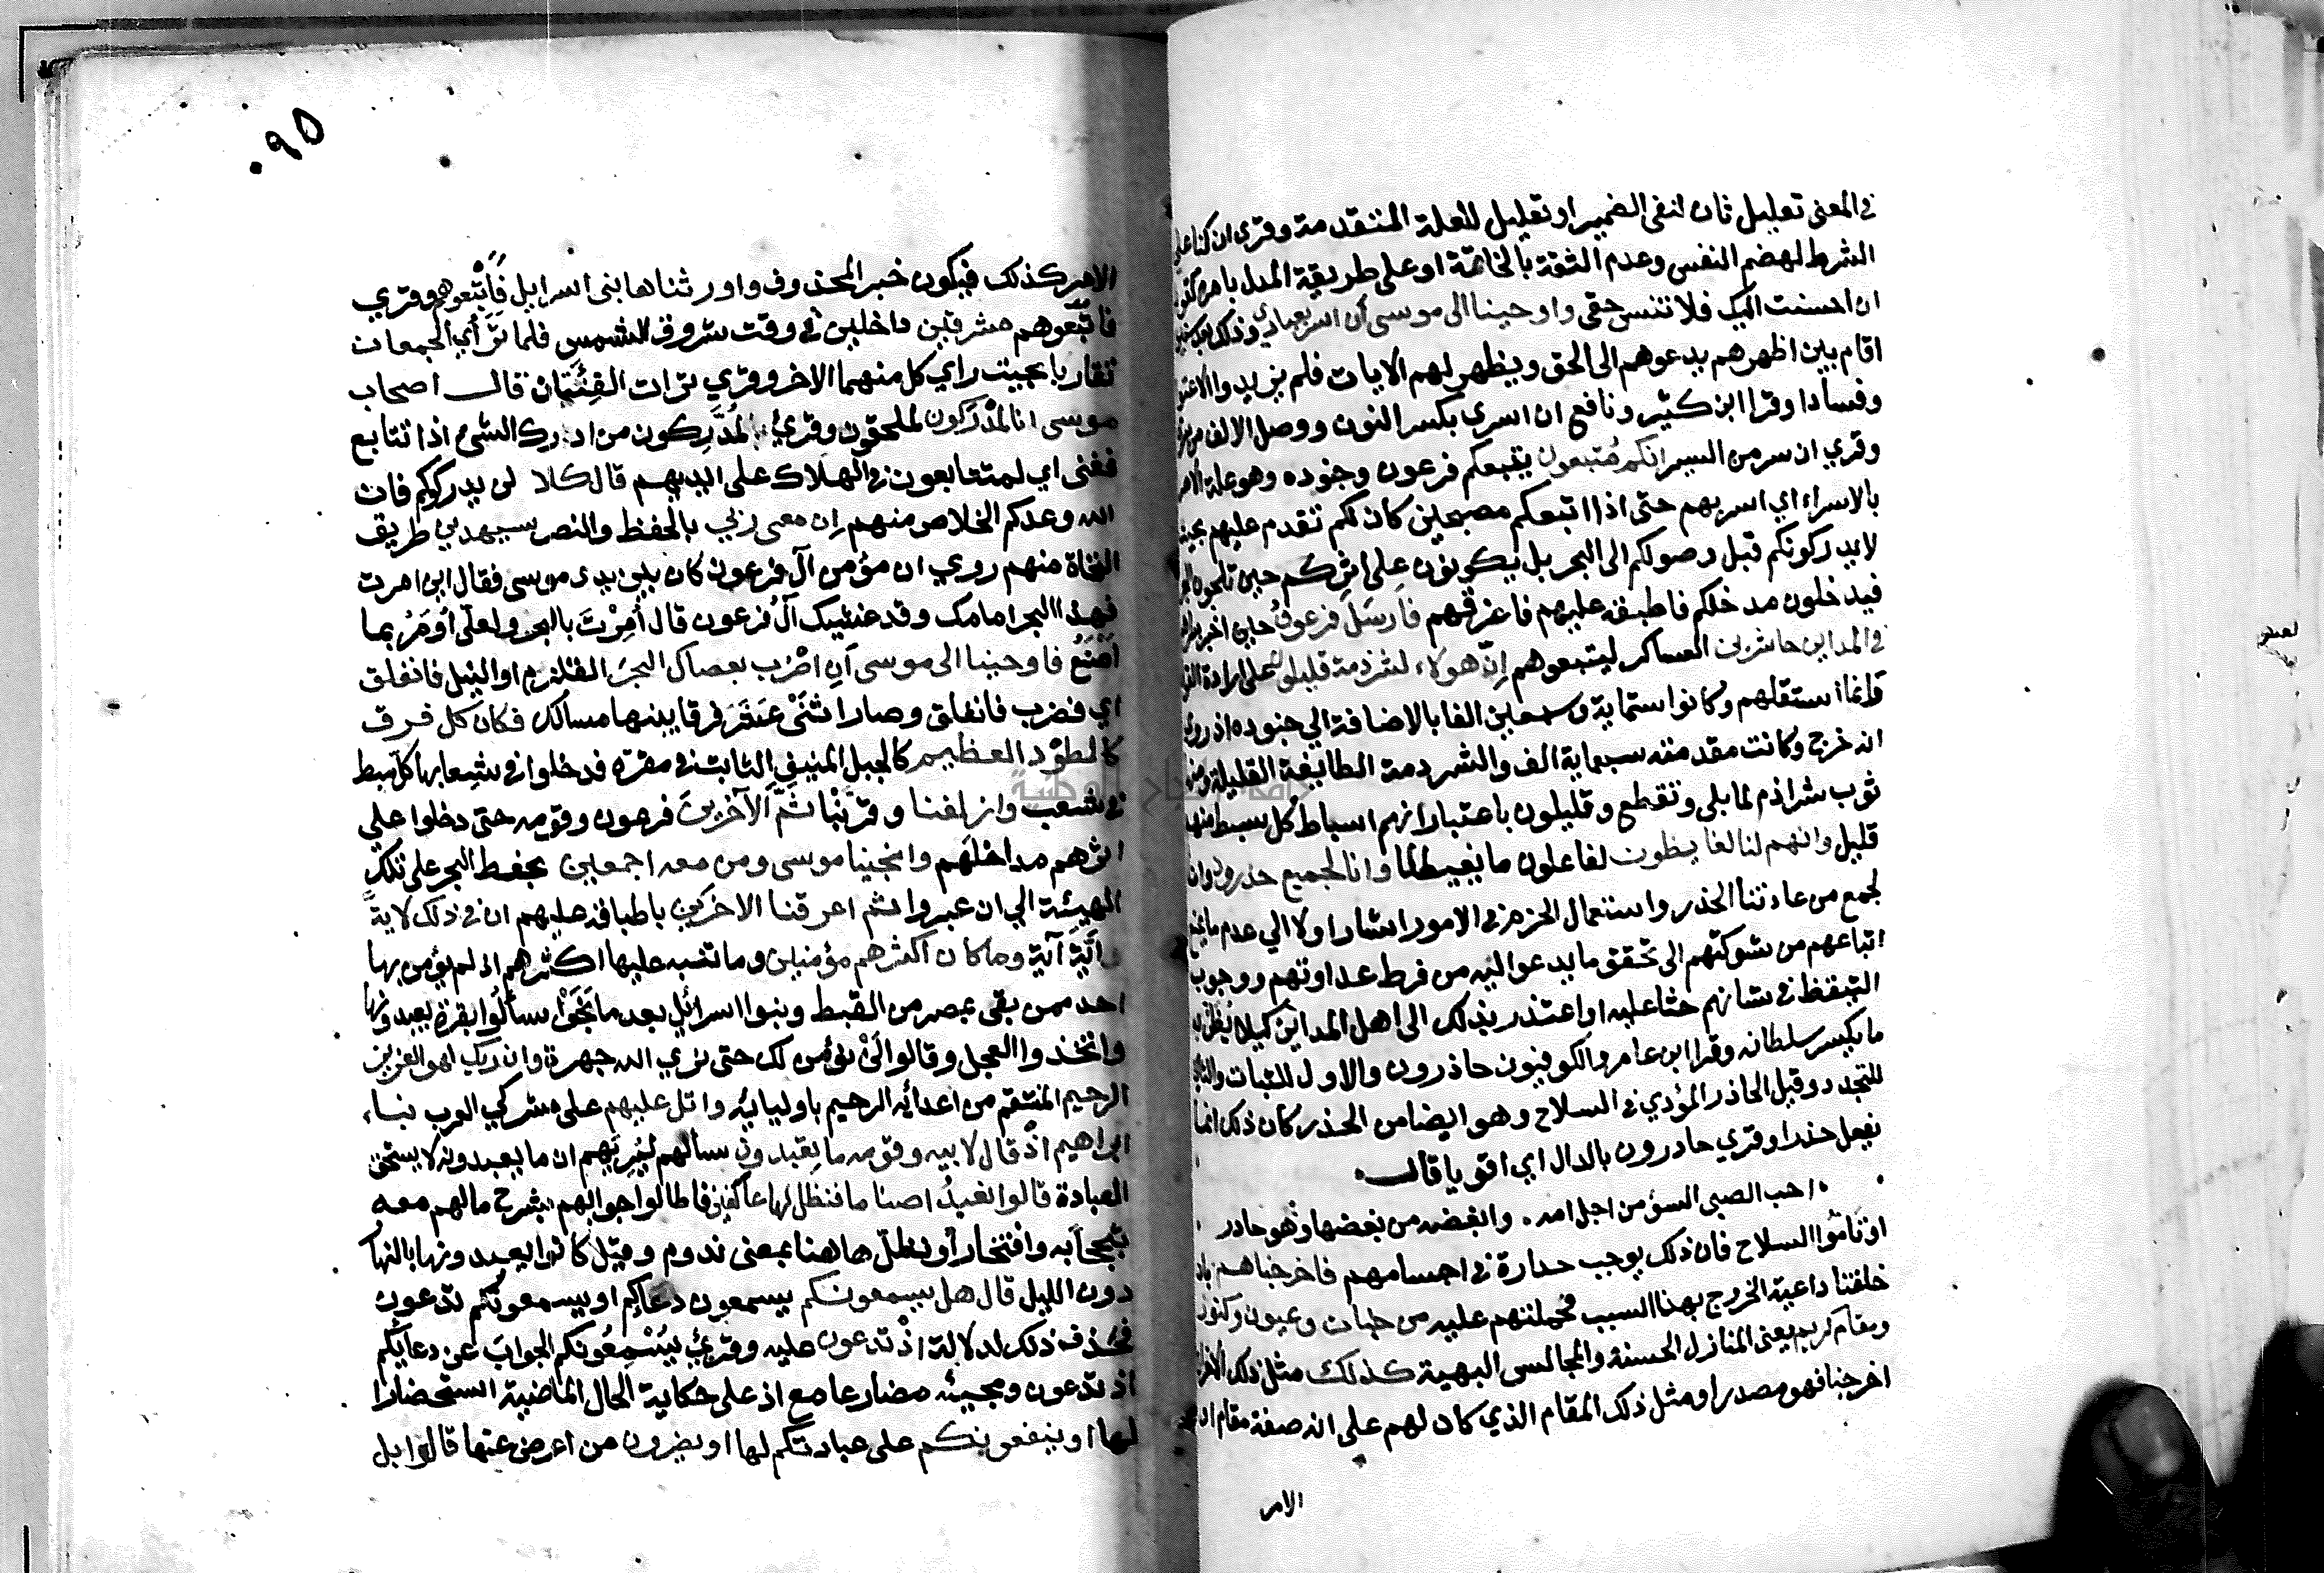 في المعنى تعليل ثان لنفي الضمير او تعليل للعلة المتقدمة وقرئ ان كنا على
الشرط لهضم النفس وعدم الثقة بالخاتمة او على طريقة المدل بامره كقول
ان احسنت اليك فلا تنس حقي واوحينا الى موسى أن اسر بعبادي وذلك بعد سنين
اقام بين اظهرهم يدعوهم الى الحق ويظهر لهم الايات فلم يزيدوا الا عتوا
وفسادا وقرا ابن كثير ونافع ان اسري بكسر النون ووصل الالف من سرى
وقري ان سر من السير انكم مُتبعون يتبعكم فرعون وجنوده وهو علة الامر
بالاسراء اي اسر بهم حتى اذا اتبعكم مصبحين كان لكم تقدم عليهم بحيث
لا يدركونكم قبل وصولكم الى البحر بل يكونون على اثركم حين تلجون البحر
فيدخلون مدخلكم فاطبقه عليهم فاغرقهم فارسَلَ فرعونُ حين اخبر بسراهم
في المداين حاشرين العساكر ليتبعوهم إنّ هولاء لشرذمة قليلون على ارادة القول
وانما استقلهم وكانوا ستماية وسبعين الفا بالاضافة الي جنوده اذ روي
انه خرج وكانت مقدمته سبعماية الف والشرذمة الطايفة القليلة ومنه
ثوب شراذم لما بلى وتقطع وقليلون باعتبار انهم اسباط كل سبط منهم
قليل وانهم لنا لغايظون لفاعلون ما يغيظنا وانا لجميع حذرون وانا
لجمع من عادتنا الحذر واستعمال الحزم في الامور اشار اولا الي عدم ما يمنع
اتباعهم من شوكتهم الى تحقق ما يدعو اليه من فرط عداوتهم ووجوب
التيقظ في شانهم حثا عليه او اعتذر بذلك الى اهل المداين كيلا يُظن به
ما يكسر سلطانه وقرا ابن عامر والكوفيون حاذرون والاول للثبات والثاني
للتجدد وقيل الحاذر المؤدي في السلاح وهو ايضا من الحذر كان ذلك انما
يفعل حذرا وقري حادرون بالدال اي اقويا قال
احب الصبي السؤ من اجل امه وابغضه من بغضها وهو حادر
او تامّوا السلاح فان ذلك يوجب حدارة في اجسامهم فاخرجناهم بان
خلقنا داعية الخروج بهذا السبب فحملتهم عليه من جنات وعيون وكنوز
ومقام كريم يعني المنازل الحسنة والمجالس البهية كذلك مثل ذلك الاخراج
اخرجنا فهو مصدر او مثل ذلك المقام الذي كان لهم على انه صفة مقام او
الامر
٠٩٥
الامر كذلك فيكون خبر المحذوف واورثناها بنى اسرايل فَأَتْبَعوهم وقري
فاتّبعوهم مشرقين داخلين في وقت شروق الشمس فلما تَرَأي الجمعان
تقاربا بحيث راي كل منهما الاخر وقري تراتِ الفِئَتان قال اصحاب
موسى انا لمُدْرَكون لملحقون وقرئ لمُدَّرِكون من ادرك الشئ اذا تتابع
ففنى اي لمتتابعون في الهلاك على ايديهم قال كلا لن يدركوكم فان
الله وعدكم الخلاص منهم إن معي ربي بالحفظ والنصر سيهدين طريق
النجاة منهم روي ان مؤمن آل فرعون كان بين يدى موسى فقال اين امرت
فهذا البحر امامك وقد غشيك آلُ فرعون قال أُمِرْتَ بالبحر ولعلّي أُومَرُ بما
اَصْنَعُ فاوحينا الى موسى أن اضْرِب بعصاك البحرَ القلزم او النيل فانفلق
اي فضرب فانفلق وصار اثنَيْ عَشَرَ فرقا بينها مسالك فكان كل فرق
كالطوْد العظيم كالجبل المنيفِ الثابت في مقره فدخلوا في شِعابها كل سبط
في شعب وازلفنا وقرّبْنا ثَمَّ الآخرينَ فرعون وقومه حتى دخلوا علي
اثرهم مداخلَهم وانجينا موسى ومن معه اجمعين بحفظ البحر على تلك
الهيئة الي ان عبروا ثم اغرقنا الاخرين باطباقه عليهم ان في ذلك لايةً
وأيَّةَ آيةٍ وما كان اكثرهم مؤمنين وما تنبه عليها اكثرهم اذ لم يؤمن بها
احد ممن بقى بمصر من القبط وبنوا اسرائيل بعد ما نَجَوْا سألُوا بقرة يعبدونها
واتخذوا العجل وقالوا لَنْ نؤمن لك حتى نري الله جهرة وان ربك لهو العزيز
الرحيم المنتقم من اعدائه الرحيم باوليايه واتل عليهم على مشركي العرب نباء
ابراهيم اذْ قال لابيه وقومه ما تعْبدون سألهم ليُرِيَهم ان ما يعبدونه لا يستحق
العبادة قالوا نعبدُ اصناما فنظل لها عاكفين فاطالوا جوابهم بشرح مالهم معه
تبجحًا به وافتخارا ونظلّ هاهنا بمعنى ندوم وقيل كانوا يعبدونها بالنهار
دون الليل قال هل يسمعونكم يسمعون دعاكم او يسمعونكم تدعون
فحذف ذلك لدلالة اذْ تدعون عليه وقرئ يُسْمِعُونكم الجوابَ عن دعائكم
اذ تدعون ومجيئه مضارعا مع اذ على حكاية الحال الماضية استحضارا
لها او ينفعونكم على عبادتكم لها او يضرون من اعرض عنها قالوا بل